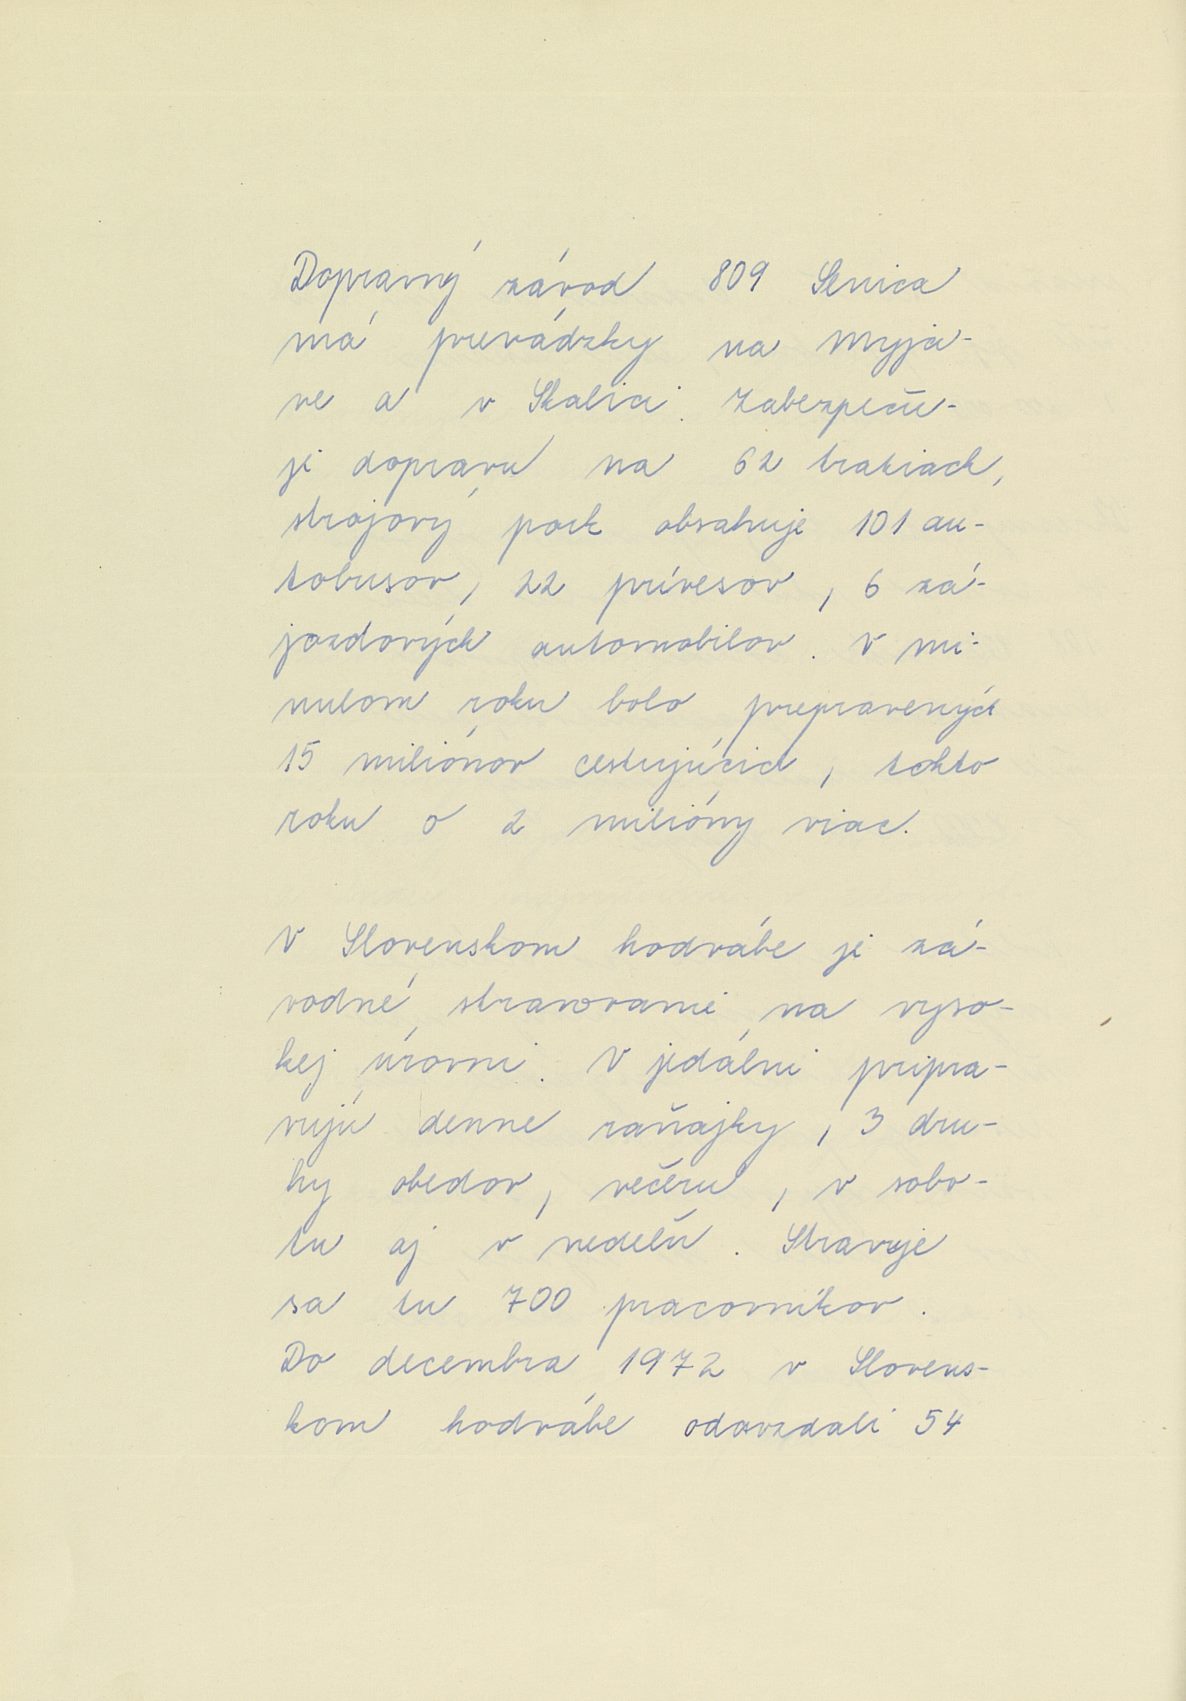 Dopravný závod 809 Senica
má prevádzky na Myja-
ve a v Skalici. Zabezpeču-
je dopravu na 62 tratiach,
strojový park obsahuje 101 au-
tobusov, 22 prívesov, 6 zá-
jazdových automobilov. V mi-
nulom roku bolo prepravených
15 miliónov cestujúcich, tohto
roku o 2 milióny viac.

V Slovenskom hodvábe je zá-
vodné stravovanie na vyso-
kej úrovni. V jedálni pripra-
vujú denne raňajky, 3 dru-
hy obedov, večeru, v sobo-
tu aj v nedeľu. Stravuje
sa tu 700 pracovníkov.
Do decembra 1972 v Slovens-
kom hodvábe odovzdali 54